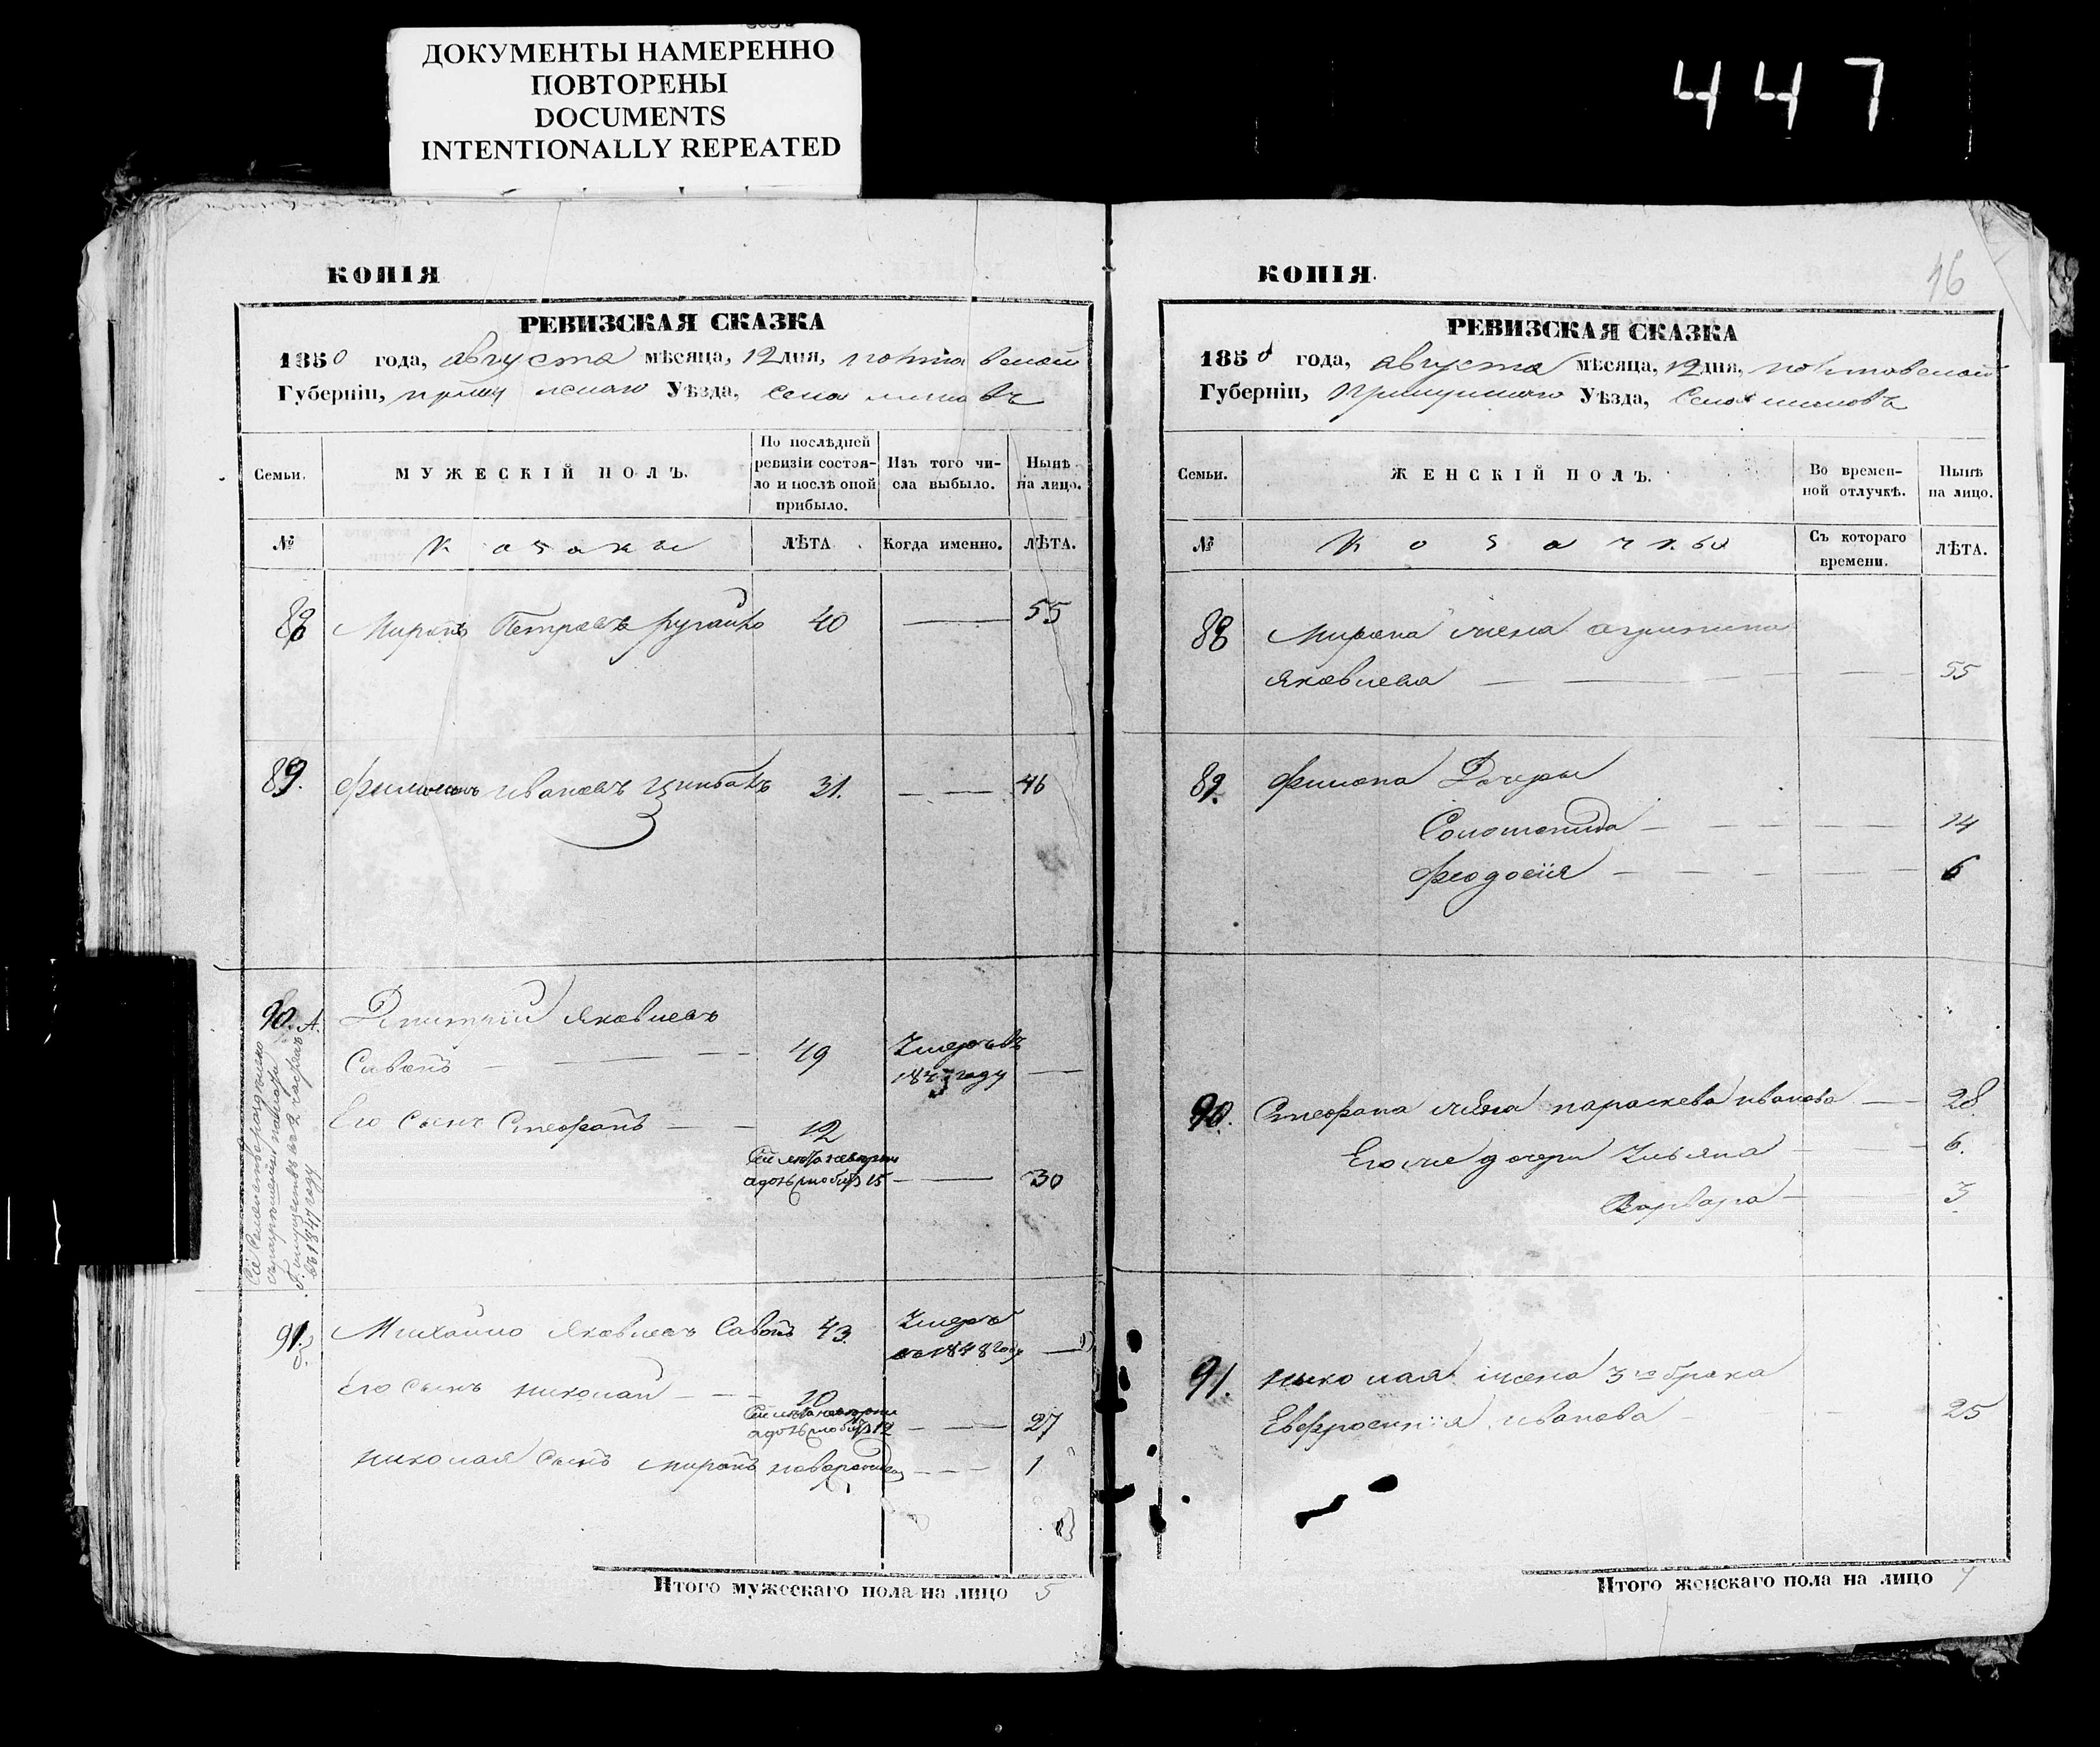 ДОКУМЕНТЫ НАМЕРЕННО
ПОВТОРЕНЫ
DOCUMENTS
INTENTIONALLY REPEATED
447
КОПІЯ
РЕВИЗСКАЯ СКАЗКА
1850 года, августа мѣсяца, 12 дня, полтавской
Губерніи, Уѣзда, села
Семьи.
МУЖЕСКІЙ ПОЛЪ.
По послѣдней
ревизіи состоя-
ло и послѣ оной
прибыло.
Изъ того чи-
сла выбыло.
Нынѣ
на лицо.
№
Козаки
ЛѢТА
Когда именно.
ЛѢТА.
88 Миронъ Петровъ 40 55
89. Филимонъ Ивановъ 31. 46
90. А. Дмитрій Яковлевъ
Савонъ 49 Умеръ въ
году
Его сынъ Стефанъ 12
15 30
въ 1847 году
91. Михайло Яковлевъ Савонъ 43. Умеръ
въ 1848 году
Его сынъ Николай 20
12 27
Николая сынъ Миронъ новорожден 1
Итого мужескаго пола на лицо 5
КОПІЯ.
46
РЕВИЗСКАЯ СКАЗКА
1850 года, августа мѣсяца, 12 дня, полтавской
Губерніи, Уѣзда, Села
Семьи.
ЖЕНСКІЙ ПОЛЪ.
Во времен-
ной отлучкѣ.
Нынѣ
на лицо.
№
Козачьяго
Съ котораго
времени.
ЛѢТА.
88 Мирона жена Агрипина
Яковлева 55
89. Филимона Дочери
Соломонида 14
Феодосія 6
90. Стефана жена Параскева Иванова 28
Его же дочери Ульяна 6.
Варвара 3
91. Николая жена 3го брака
Евфросинія Иванова 25
Итого женскаго пола на лицо 7